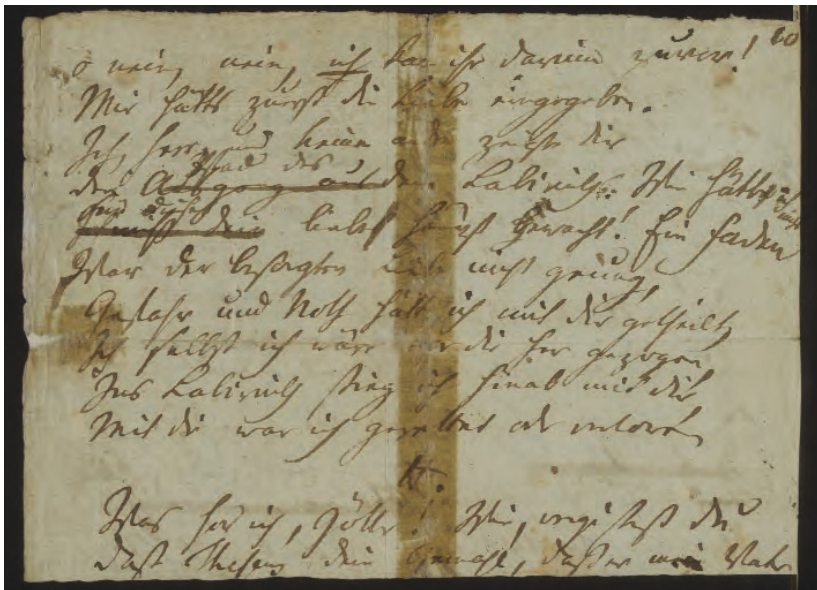 20
o nein, nein, ich kam ihr darinn zuvor!
Mir hätts zuerst die Liebe eingegeben.
Ich, Herr, und keine andre zeigte dir
Pfad des
den Ausgang aus dem Labirinths. Wie hätt ich nicht
Für dieses
liebes Haupt gewacht! Ein Faden
War der besorgten Liebe nicht genug,
Gefahr und Noth hätt ich mit dir getheilt,
Ich selbst ich wäre vor dir her gezogen,
Ins Labirinth stieg ich hinab mit dir,
Mit dir war ich gerettet oder verloren,
H.
Was hör ich, Götter! Wie, vergissest du
Daß Theseus dein Gemahl, daß er mein Vater